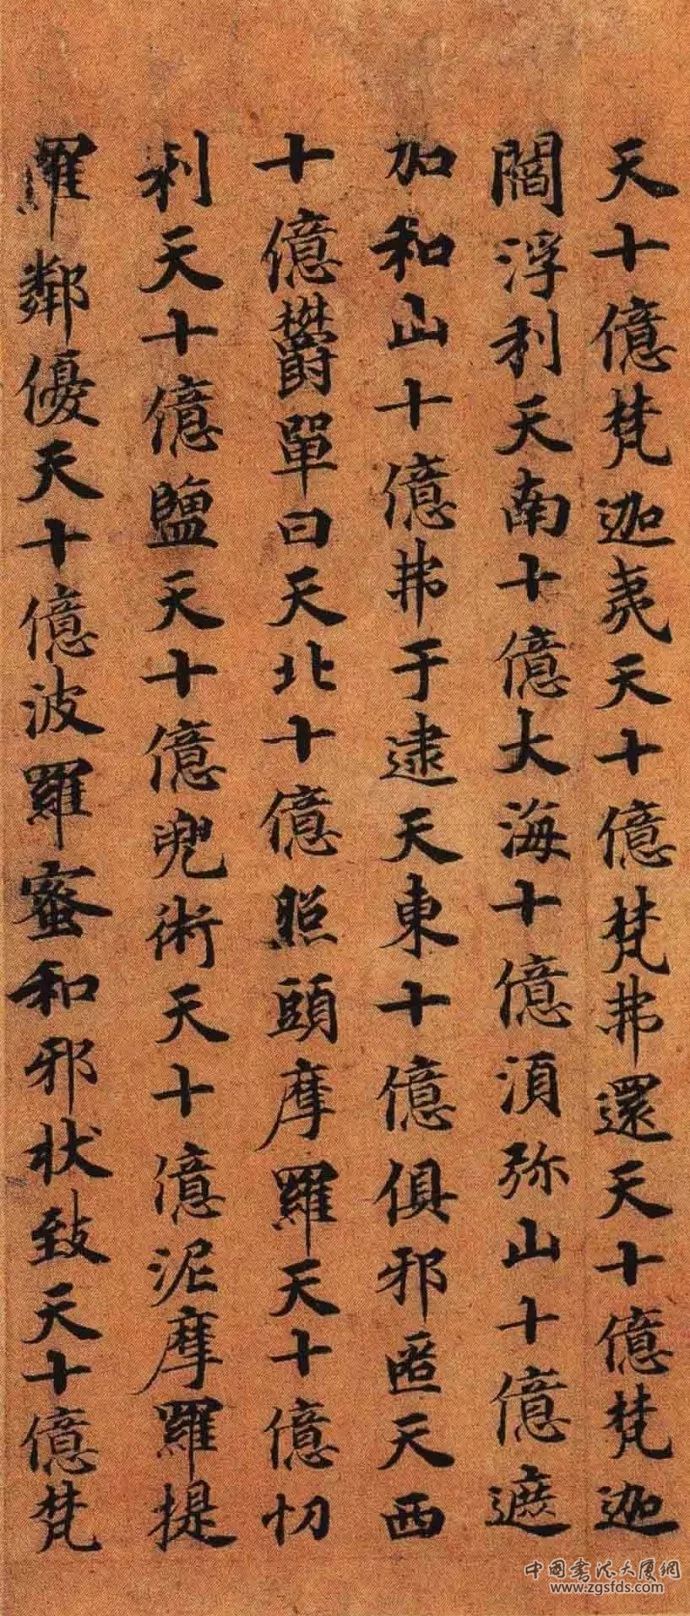 天十億梵迦夷天十億梵弗還天十億梵迦
閻浮利天南十億大海十億須弥山十億遮
加和山十億弗于逮天東十億俱邪匿天西
十億欝單曰天北十億照頭摩羅天十億忉
利天十億鹽天十億兜術天十億泥摩羅提
羅鄰優天十億波羅蜜和邪状致天十億梵
中国书法大厦网
www.zgsfds.com